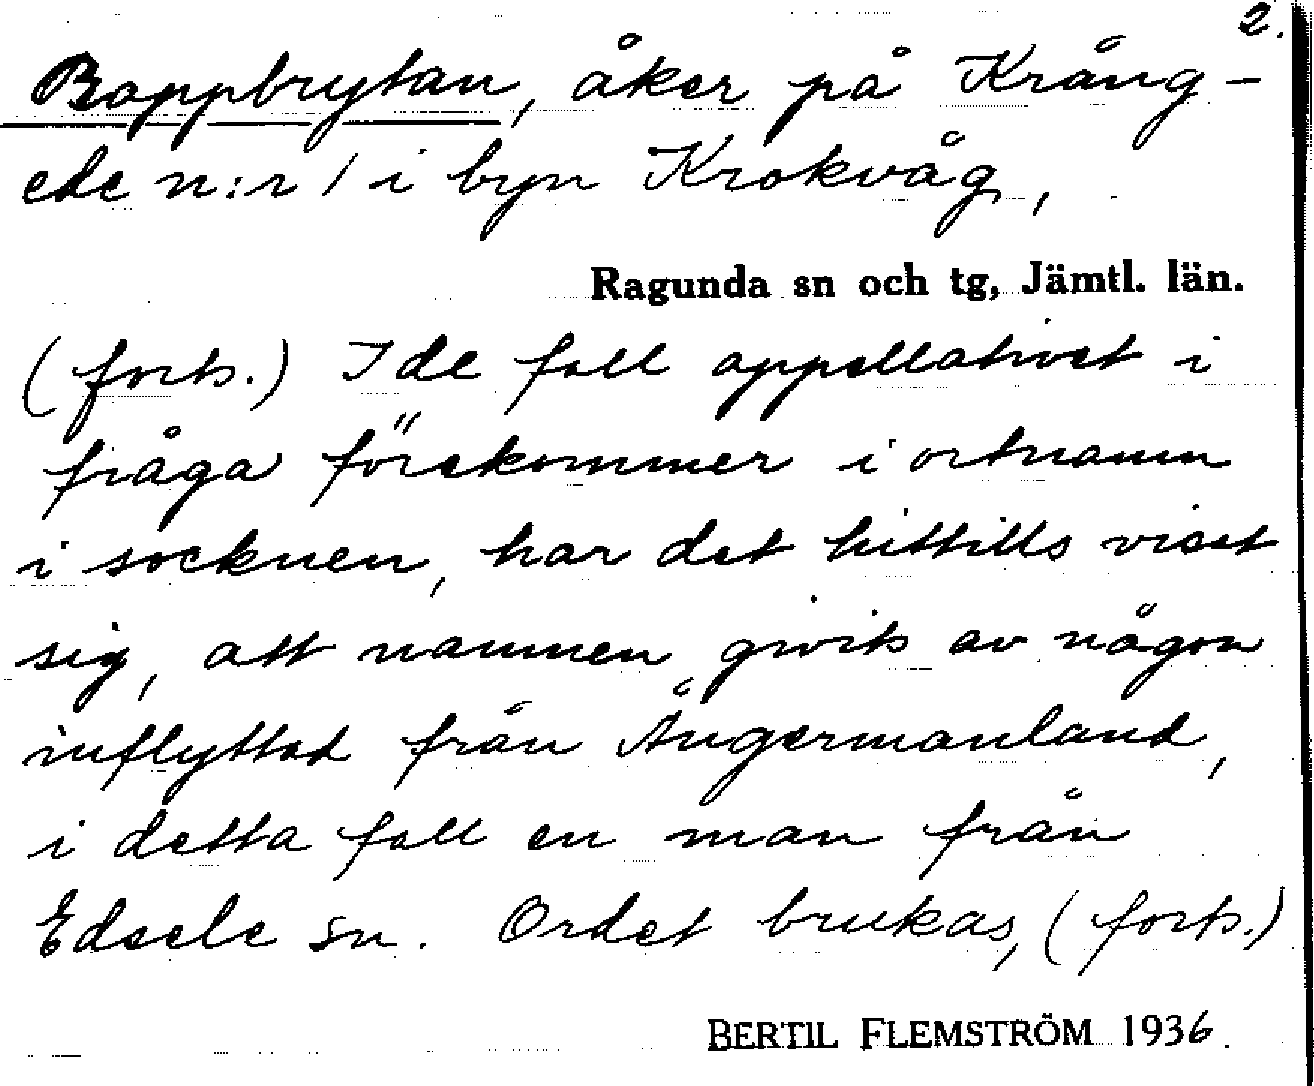 2.
Bappbrytan, åker på Kräng-
ede n:r 1 i byn Krokvåg,
Ragunda sn och tg, Jämtl. län.
(forts.) I de fall appellativet i
fråga förekommer i ortnamn
i socknen, har det hittills visat
sig, att namnen givits av någon
inflyttad från Ångermanland,
i detta fall en man från
Edsele sn. Ordet brukas, (forts.)
BERTIL FLEMSTRÖM 1936.